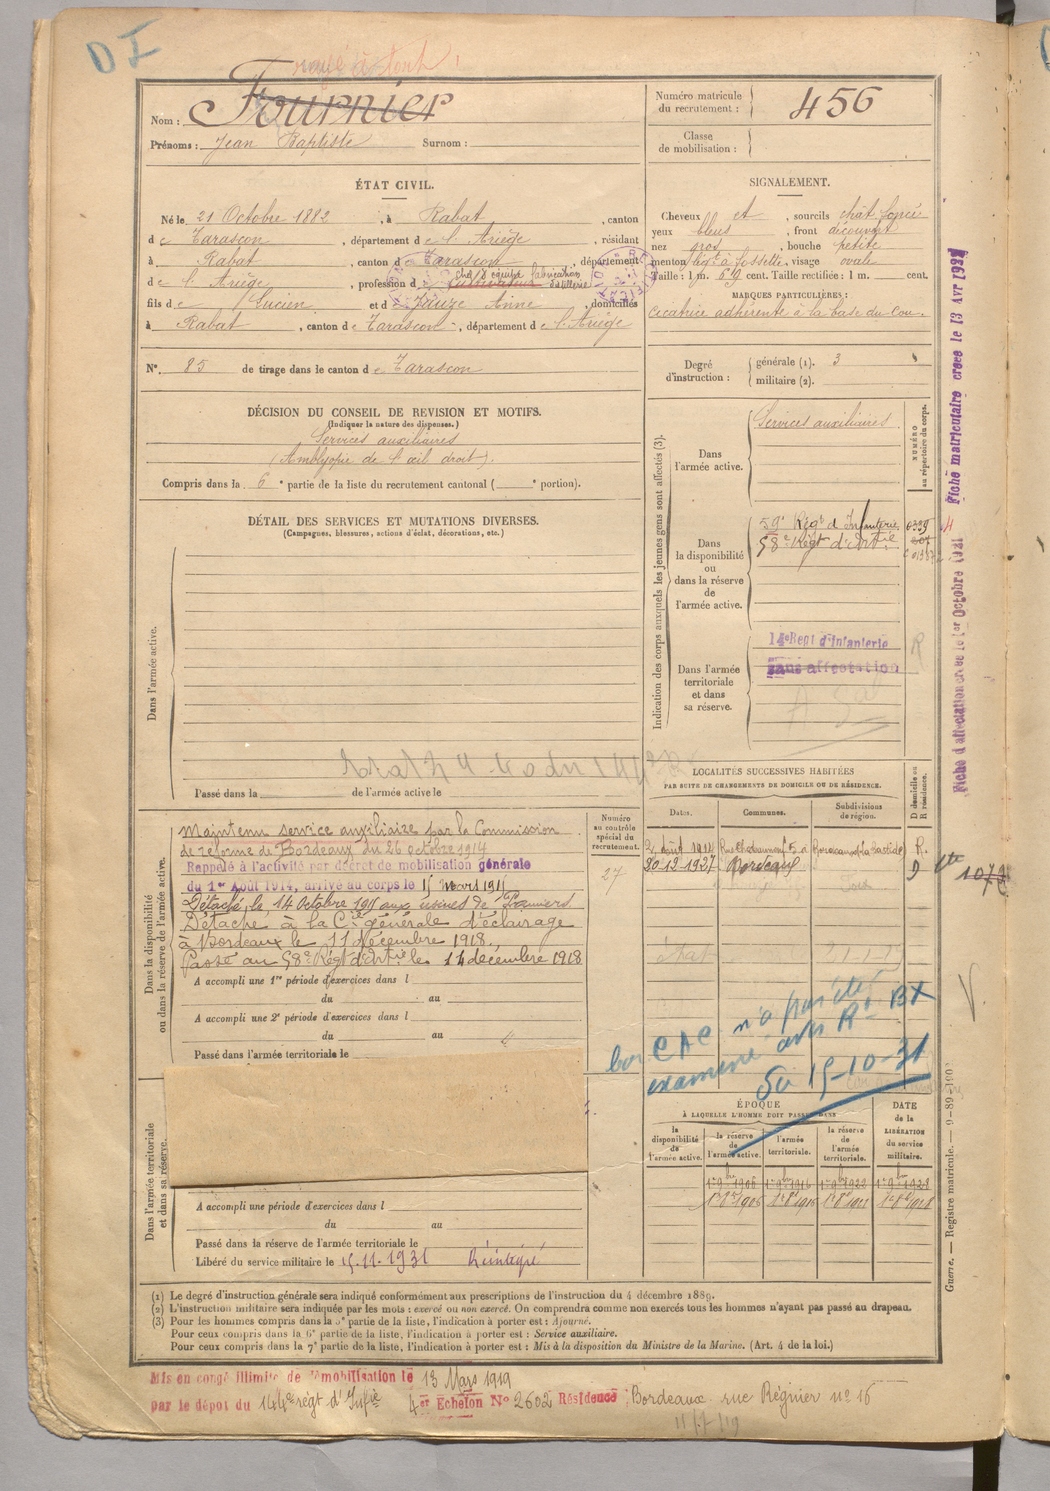 D I
Nom : Fournier
Prénoms : Jean Baptiste Surnom :
Numéro matricule du recrutement : 456
Classe de mobilisation :
ÉTAT CIVIL.
Né le 21 Octobre 1882, à Rabat, canton
de Tarascon, département de l'Ariège, résidant
à Rabat, canton de Tarascon, département
de l'Ariège, profession de cultivateur distillerie
fils de Lucien et d Jauze Anne, domiciliés
à Rabat, canton de Tarascon, département de l'Ariège
N°. 85 de tirage dans le canton de Tarascon
SIGNALEMENT.
Cheveux et, sourcils chât. foncé
yeux bleus, front découvert
nez gros, bouche petite
menton à fossette, visage ovale
Taille : 1 m. 69 cent. Taille rectifiée : 1 m. cent.
MARQUES PARTICULIÈRES :
Cicatrice adhérente à la base du Cou.
Degré d'instruction : générale (1). 3
militaire (2).
DÉCISION DU CONSEIL DE REVISION ET MOTIFS.
(Indiquer la nature des dispenses.)
Services auxiliaires
(Amblyopie de l'œil droit).
Compris dans la 6e partie de la liste du recrutement cantonal ( e portion).
DÉTAIL DES SERVICES ET MUTATIONS DIVERSES.
(Campagnes, blessures, actions d'éclat, décorations, etc.)
Dans l'armée active.
Passé dans la de l'armée active le
Indication des corps auxquels les jeunes gens sont affectés (3).
NUMÉRO au répertoire du corps.
Dans l'armée active.
Services auxiliaires.
Dans la disponibilité ou dans la réserve de l'armée active.
59e Régt d'Infanterie
58e Régt d'Artie
Dans l'armée territoriale et dans sa réserve.
Régt d'Infanterie
Sans affectation
R
Fiche d'affectation créée le 1er Octobre 1921
Fiche matriculaire créée le 13 Avr
LOCALITÉS SUCCESSIVES HABITÉES
PAR SUITE DE CHANGEMENTS DE DOMICILE OU DE RÉSIDENCE.
Dates. Communes. Subdivisions de région. D domicile ou R résidence.
août 1911 R.
20-12-1927 Bordeaux D
Numéro au contrôle spécial du recrutement.
27
Dans la disponibilité ou dans la réserve de l'armée active.
Maintenu service auxiliaire par la Commission
de réforme de Bordeaux du 26 octobre 1914
Rappelé à l'activité par décret de mobilisation générale
du 1er Août 1914, arrivé au corps le 15 mars 1915
Détaché le 14 Octobre 1915 aux usines de
Détaché à la Cie générale d'éclairage
à Bordeaux le 11 décembre 1918.
Passé au 58e Régt d'Artie le 14 décembre 1918
A accompli une 1re période d'exercices dans l
du au
A accompli une 2e période d'exercices dans l
du au
Passé dans l'armée territoriale le
bon CAC n'a pas été
examiné avis Rt BX
15-10-31
V.
Dans l'armée territoriale et dans sa réserve.
ÉPOQUE
À LAQUELLE L'HOMME DOIT PASSER DANS
la disponibilité de l'armée active. la réserve de l'armée active. l'armée territoriale. la réserve de l'armée territoriale.
DATE de la LIBÉRATION du service militaire.
A accompli une période d'exercices dans l
du au
Passé dans la réserve de l'armée territoriale le
Libéré du service militaire le 15.11.1931 Réintégré
(1) Le degré d'instruction générale sera indiqué conformément aux prescriptions de l'instruction du 4 décembre 1889.
(2) L'instruction militaire sera indiquée par les mots : exercé ou non exercé. On comprendra comme non exercés tous les hommes n'ayant pas passé au drapeau.
(3) Pour les hommes compris dans la 5e partie de la liste, l'indication à porter est : Ajourné.
Pour ceux compris dans la 6e partie de la liste, l'indication à porter est : Service auxiliaire.
Pour ceux compris dans la 7e partie de la liste, l'indication à porter est : Mis à la disposition du Ministre de la Marine. (Art. 4 de la loi.)
Guerre. — Registre matricule.
Mis en congé illimité de démobilisation le 13 Mars 1919
par le dépôt du 144e régt d'Infie 4er Echelon N° 2602 Résidence : Bordeaux rue Régnier n° 16